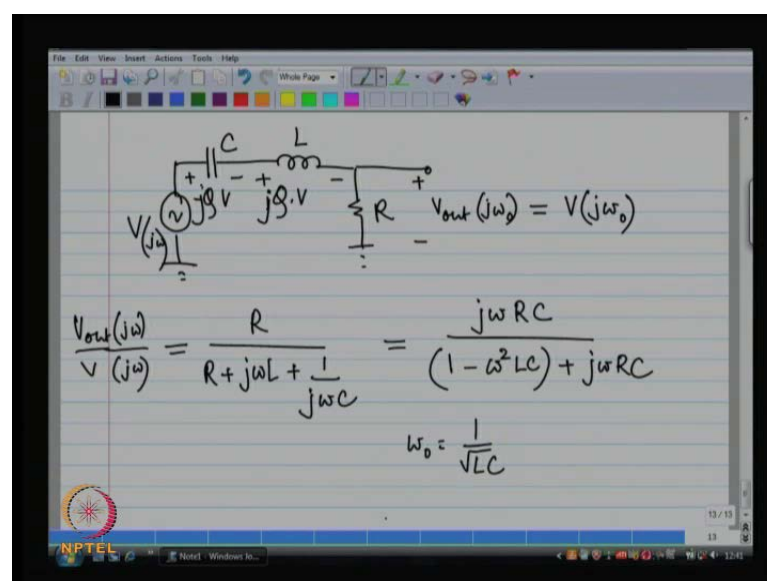 File Edit View Insert Actions Tools Help
Whole Page
B I
C L
+ - + - +
jQV jQ.V
V(jω)
R
Vout(jω₀) = V(jω₀)
-
Vout(jω) / V(jω) = R / (R + jωL + 1/jωC) = jωRC / ((1 - ω²LC) + jωRC)
ω₀ = 1/√LC
13 / 13
13
NPTEL
Note1 - Windows Jo...
12:41